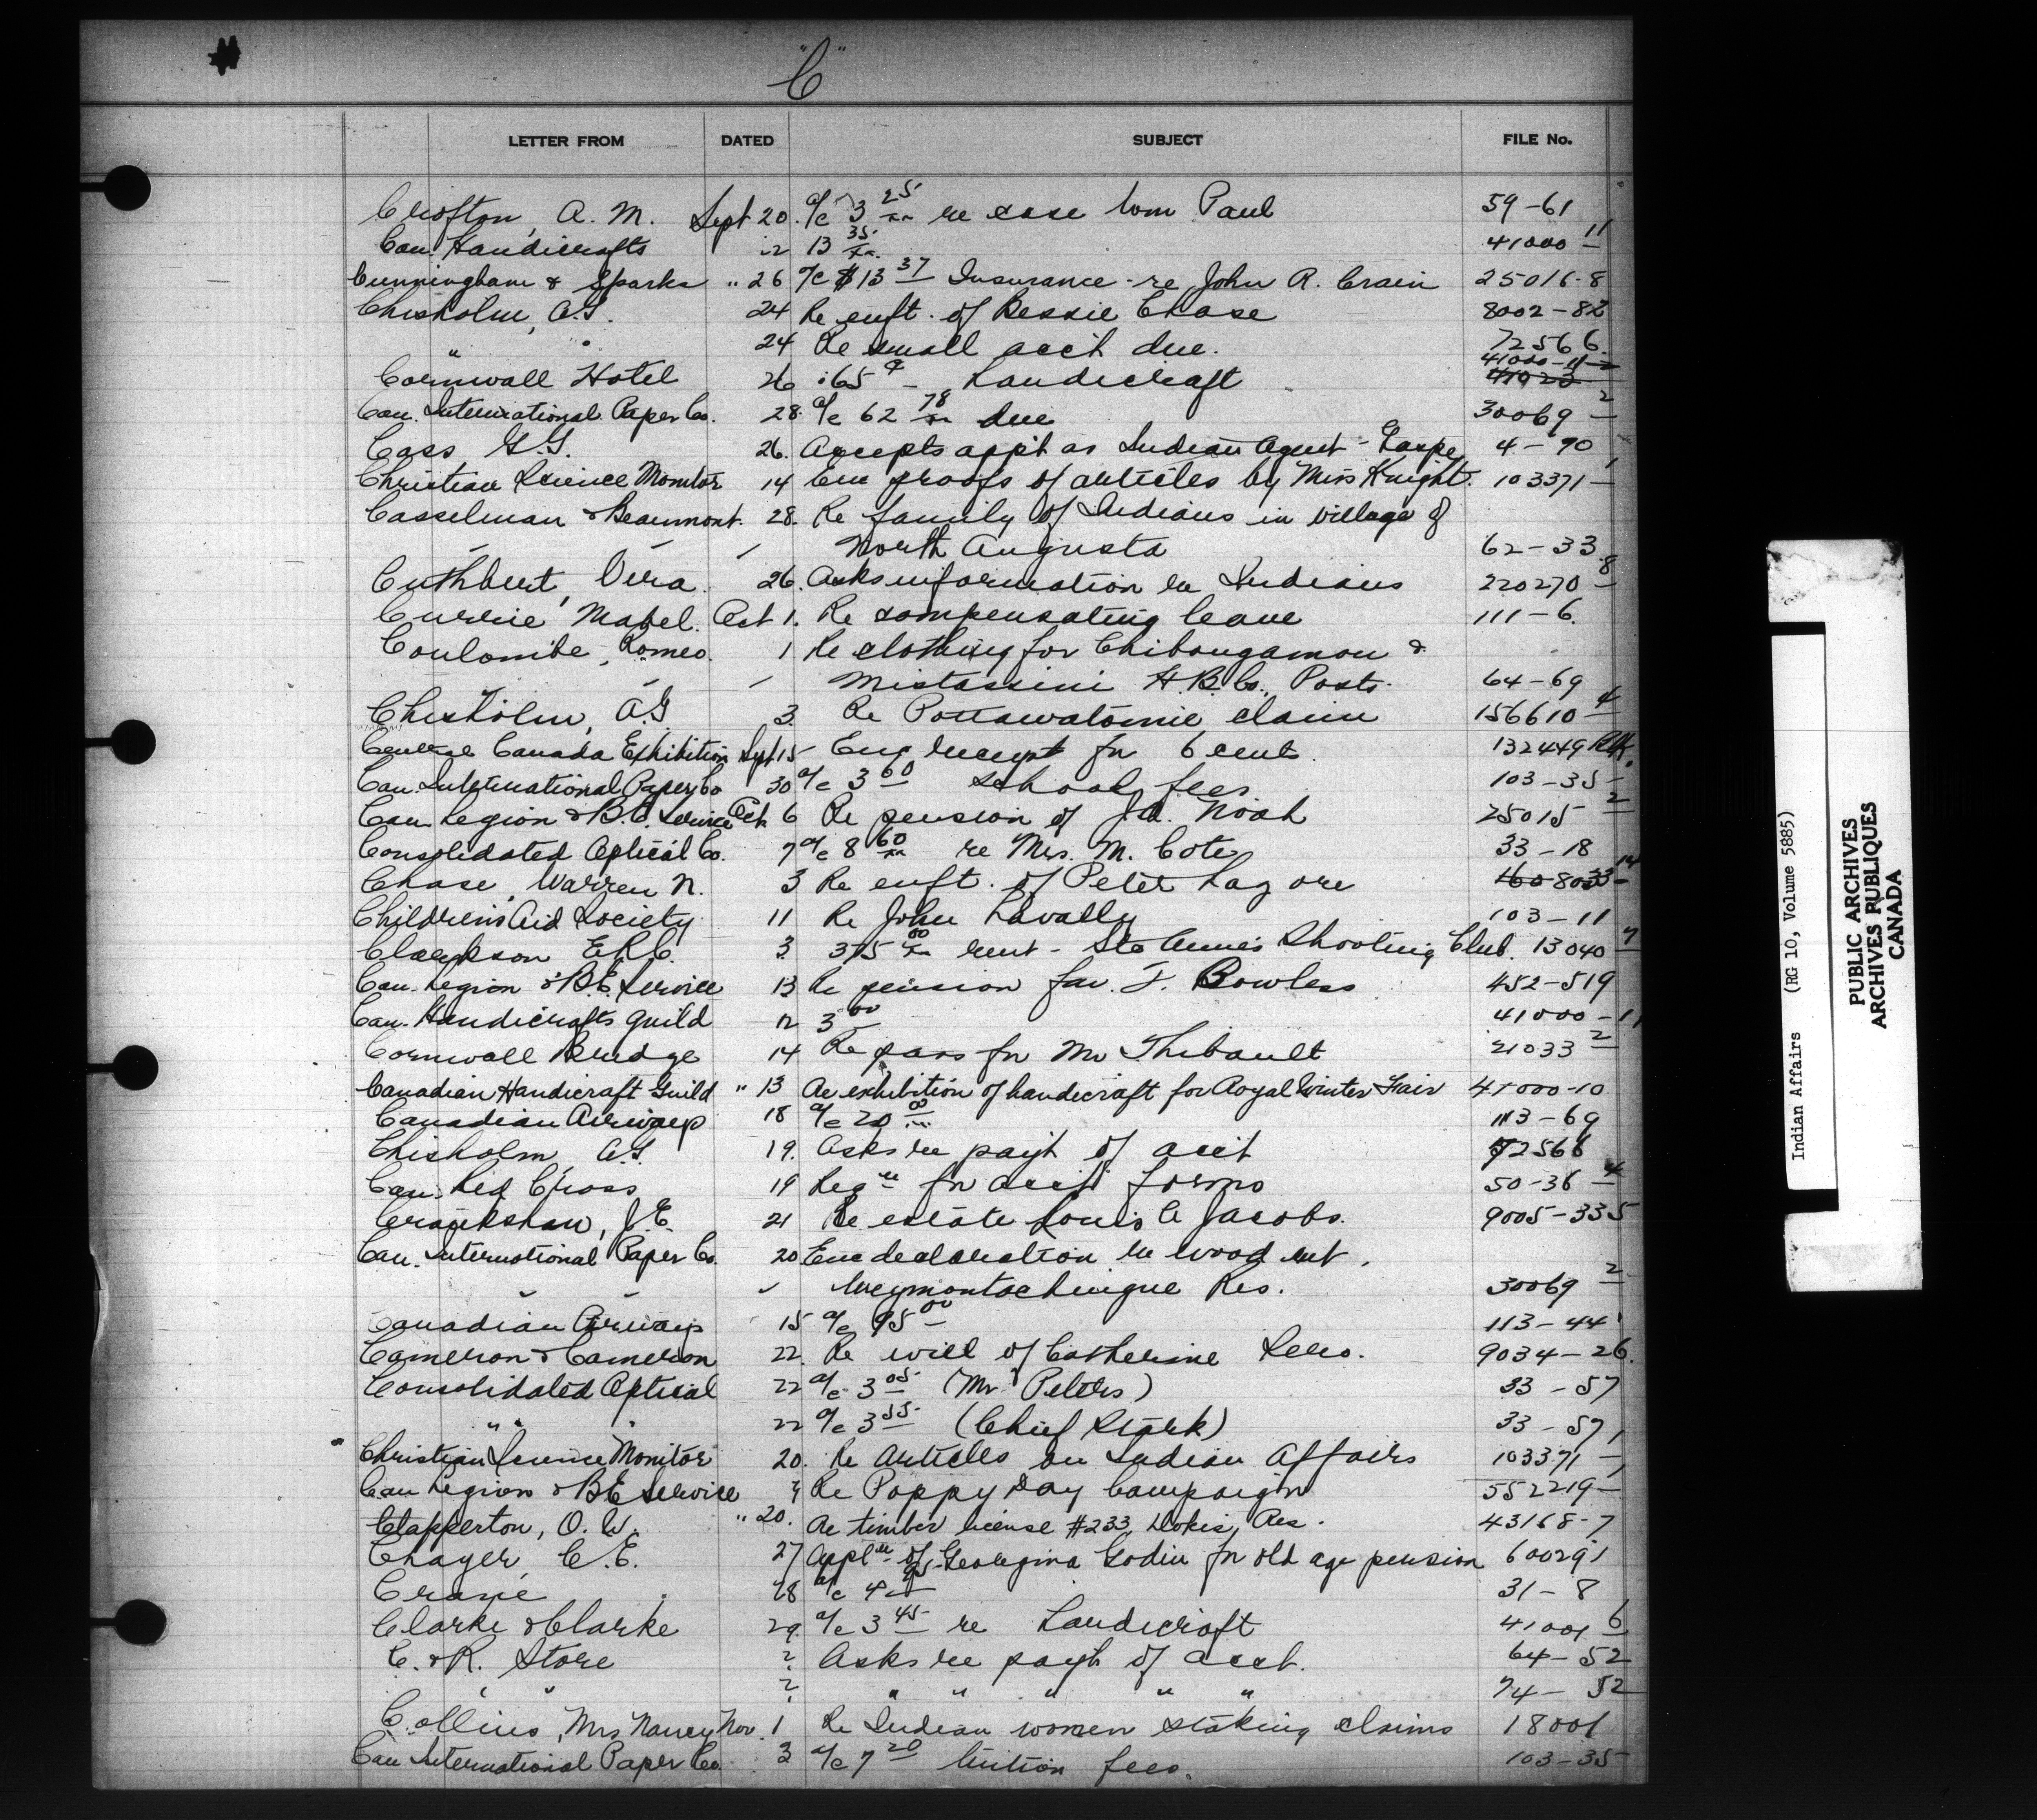 "C"
LETTER FROM DATED SUBJECT FILE No.
Crofton, A. M. Sept 20. a/c 3 25/xx re case Wm Paul 59-61
Can. Handicrafts 22 13 35/xx. 41000 11
Cunningham & Sparks " 26 a/c $13 37 Insurance - re John R. Crain 25016-8
Chisholm, A.G. 24 Re enft. of Bessie Chase 8002-82
" " 24 Re small acct due. 72566
Cornwall Hotel 26 .65 ¢ - Handicraft 41000-11-2 41023
Can. International Paper Co. 28. a/c 62 78/xx due 30069 2
Cass, G.G. 26. Accepts appt as Indian Agent - Gaspe 4-90
Christian Science Monitor 14 Enc proofs of articles by Miss Knight. 103371-1
Casselman & Beaumont. 28. Re family of Indians in village of
North Augusta 62-33
Cuthbert, Vera. 26. Asks information re Indians 220270 8
Currie, Mabel. Oct 1. Re compensating leave 111-6.
Coulombe, Romeo. 1 Re clothing for Chibougamou &
Mistassini H.B.Co. Posts. 64-69
Chisholm, A.G 3. Re Pottawatomie claim 156610 4
Central Canada Exhibition Sept 15 Enc receipt for 6 cents. 132449
Can. International Paper Co 30 a/c 3 60 school fees 103-35
Can. Legion & B.E. Service Oct. 6 Re pension of J.A. Noah 25015 2
Consolidated Optical Co. 7 a/c 8 60/xx re Mrs. M. Cote 33-18
Chase, Warren N. 3 Re enft. of Peter Lazore 8033-14
Children's Aid Society 11 Re John Lavally 103-11
Clarkson E.R.C. 3 375 00/xx rent - Ste Anne's Shooting Club. 13040 7
Can. Legion & B.E. Service 13 Re pension fav. J. Bowless 452-519
Can. Handicrafts Guild 12 3 00 41000-11
Cornwall Bridge 14 Re pass for Mr Thibault 21033 2
Canadian Handicraft Guild " 13 Re exhibition of handicraft for Royal Winter Fair 41000-10
Canadian Airways 18 a/c 20 00/xx 113-69
Chisholm A.G. 19. Asks re payt of acct 72566
Can. Red Cross 19 Reqn for acct forms 50-36 4
Crankshaw, J.E. 21 Re estate Louis C Jacobs. 9005-335
Can. International Paper Co. 20 Enc declaration re wood cut,
Weymontachingue Res. 30069 2
Canadian Airways 15 a/c 95 00 113-44
Cameron & Cameron 22. Re will of Catherine 9034-26.
Consolidated Optical 22 a/c 3 05 (Mr Peters) 33-57
" " 22 a/c 3 55 (Chief Stark) 33-57
Christian Science Monitor 20. Re Articles on Indian Affairs 103371-1
Can Legion & B.E Service 9 Re Poppy Day Campaign 552219-1
Clapperton, O. W. " 20. Re timber license #233, Dokis Res. 43168-7
Chayer, C.E. 27 Appln of Georgina Godin for old age pension 60029-1
Crane 28 a/c 4 31-8
Clarke & Clarke 29. a/c 3 45 re Handicraft 41001 6
C. & R. Store ? Asks re payt of acct. 64-52
" " ? " " " " " 74-52
Collins, Mrs Nancy Nov. 1 Re Indian women staking claims 18001
Can International Paper Co. 3 a/c 7 20 tuition fees. 103-35
Indian Affairs (RG 10, Volume 5885)
PUBLIC ARCHIVES
ARCHIVES PUBLIQUES
CANADA